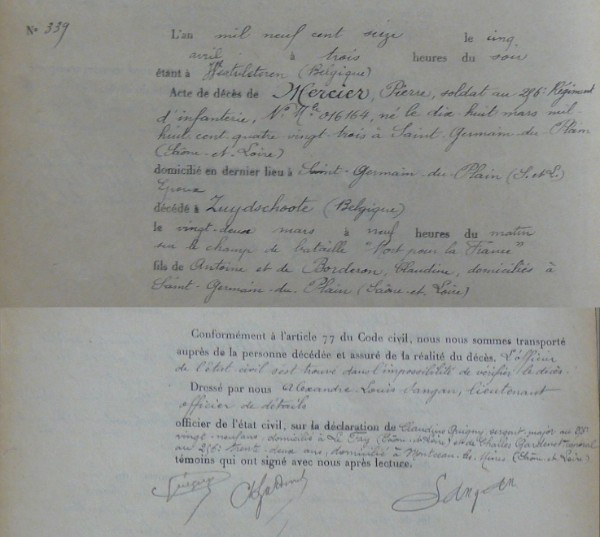 No 339
L'an mil neuf cent seize le cinq
avril à trois heures du soir
étant à (Belgique)
Acte de décès de Mercier, Pierre, soldat au 256e Régiment
d'infanterie, No Mle 016164, né le dix huit mars mil
huit cent quatre vingt trois à Saint-Germain-du-Plain
(Saône-et-Loire)
domicilié en dernier lieu à Saint-Germain-du-Plain (S.et L.)
Epoux
décédé à Zuydschoote (Belgique)
le vingt-deux mars à neuf heures du matin
sur le champ de bataille "Mort pour la France"
fils de Antoine et de Borderon, Claudine, domiciliés à
Saint-Germain-du-Plain (Saône-et-Loire)
Conformément à l'article 77 du Code civil, nous nous sommes transporté
auprès de la personne décédée et assuré de la réalité du décès. L'officier
de l'état civil s'est trouvé dans l'impossibilité de vérifier le décès.
Dressé par nous Alexandre Louis Sangan, lieutenant
officier de détails
officier de l'état civil, sur la déclaration de Claudius Guigny, sergent-major au
vingt-neuf ans, domicilié à Le Fay (Saône-et-Loire) et de Charles caporal
au 256e trente-deux ans, domicilié à Montceau-les-Mines (Saône-et-Loire)
témoins qui ont signé avec nous après lecture.
Sangan